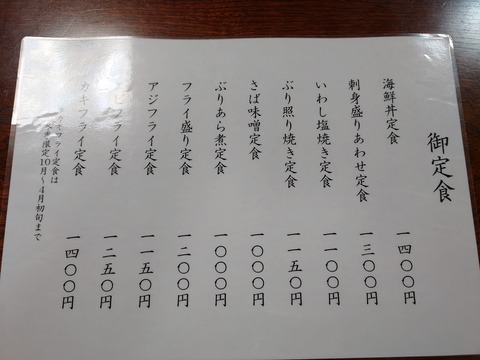 御定食
海鮮丼定食 一四〇〇円
刺身盛りあわせ定食 一三〇〇円
いわし塩焼き定食 一一〇〇円
ぶり照り焼き定食 一一五〇円
さば味噌定食 一〇〇〇円
ぶりあら煮定食 一〇〇〇円
フライ盛り定食 一二〇〇円
アジフライ定食 一一五〇円
フライ定食 一二五〇円
カキフライ定食 一四〇〇円
カキフライ定食は
限定10月〜4月初旬まで